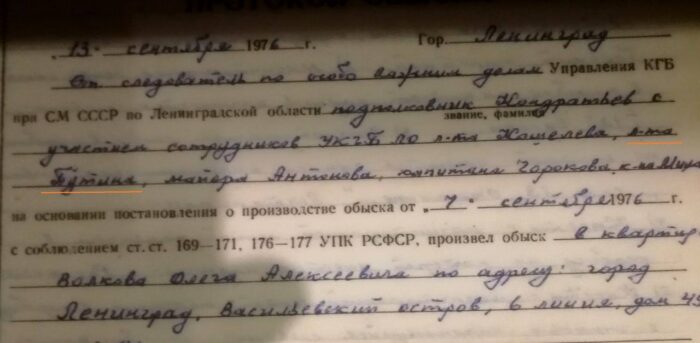 ПРОТОКОЛ
„13“ сентября 1976 г. Гор. Ленинград
Ст. следователь по особо важным делам Управления КГБ
при СМ СССР по Ленинградской области подполковник Кондратьев с
звание, фамилия
участием сотрудников УКГБ ЛО л-та Кошелева, л-та
Путина, майора Антонова, капитана Горохова,
на основании постановления о производстве обыска от „7“ сентября 1976 г.
с соблюдением ст. ст. 169—171, 176—177 УПК РСФСР, произвел обыск в квартире
Волкова Олега Алексеевича по адресу: город
Ленинград, Васильевский остров, 6 линия, дом